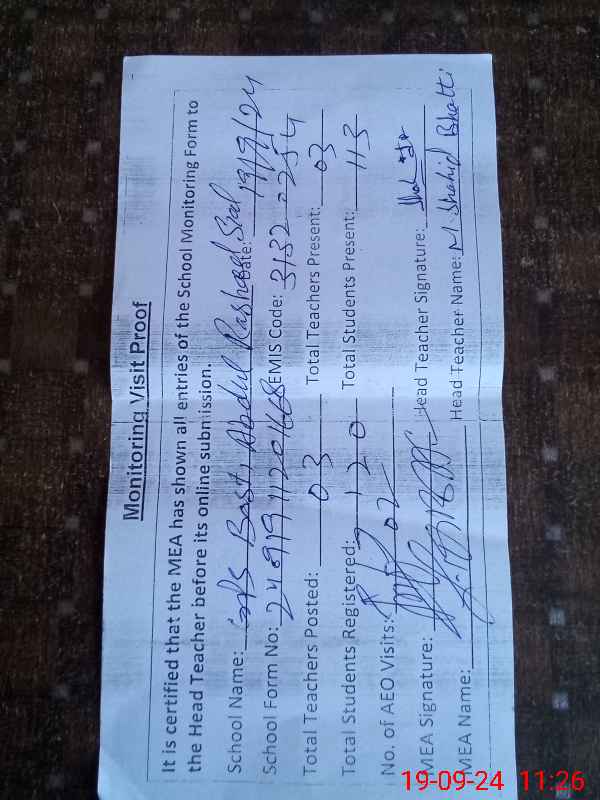 Monitoring Visit Proof
It is certified that the MEA has shown all entries of the School Monitoring Form to
the Head Teacher before its online submission.
School Name: GPS Basti Abdul Rasheed Sial Date: 19/9/24
School Form No: EMIS Code: 31320254
Total Teachers Posted: 03 Total Teachers Present: 03
Total Students Registered: 120 Total Students Present: 113
No. of AEO Visits: 02
MEA Signature: Head Teacher Signature:
MEA Name: Head Teacher Name: M. Shahid Bhatti
19-09-24 11:26